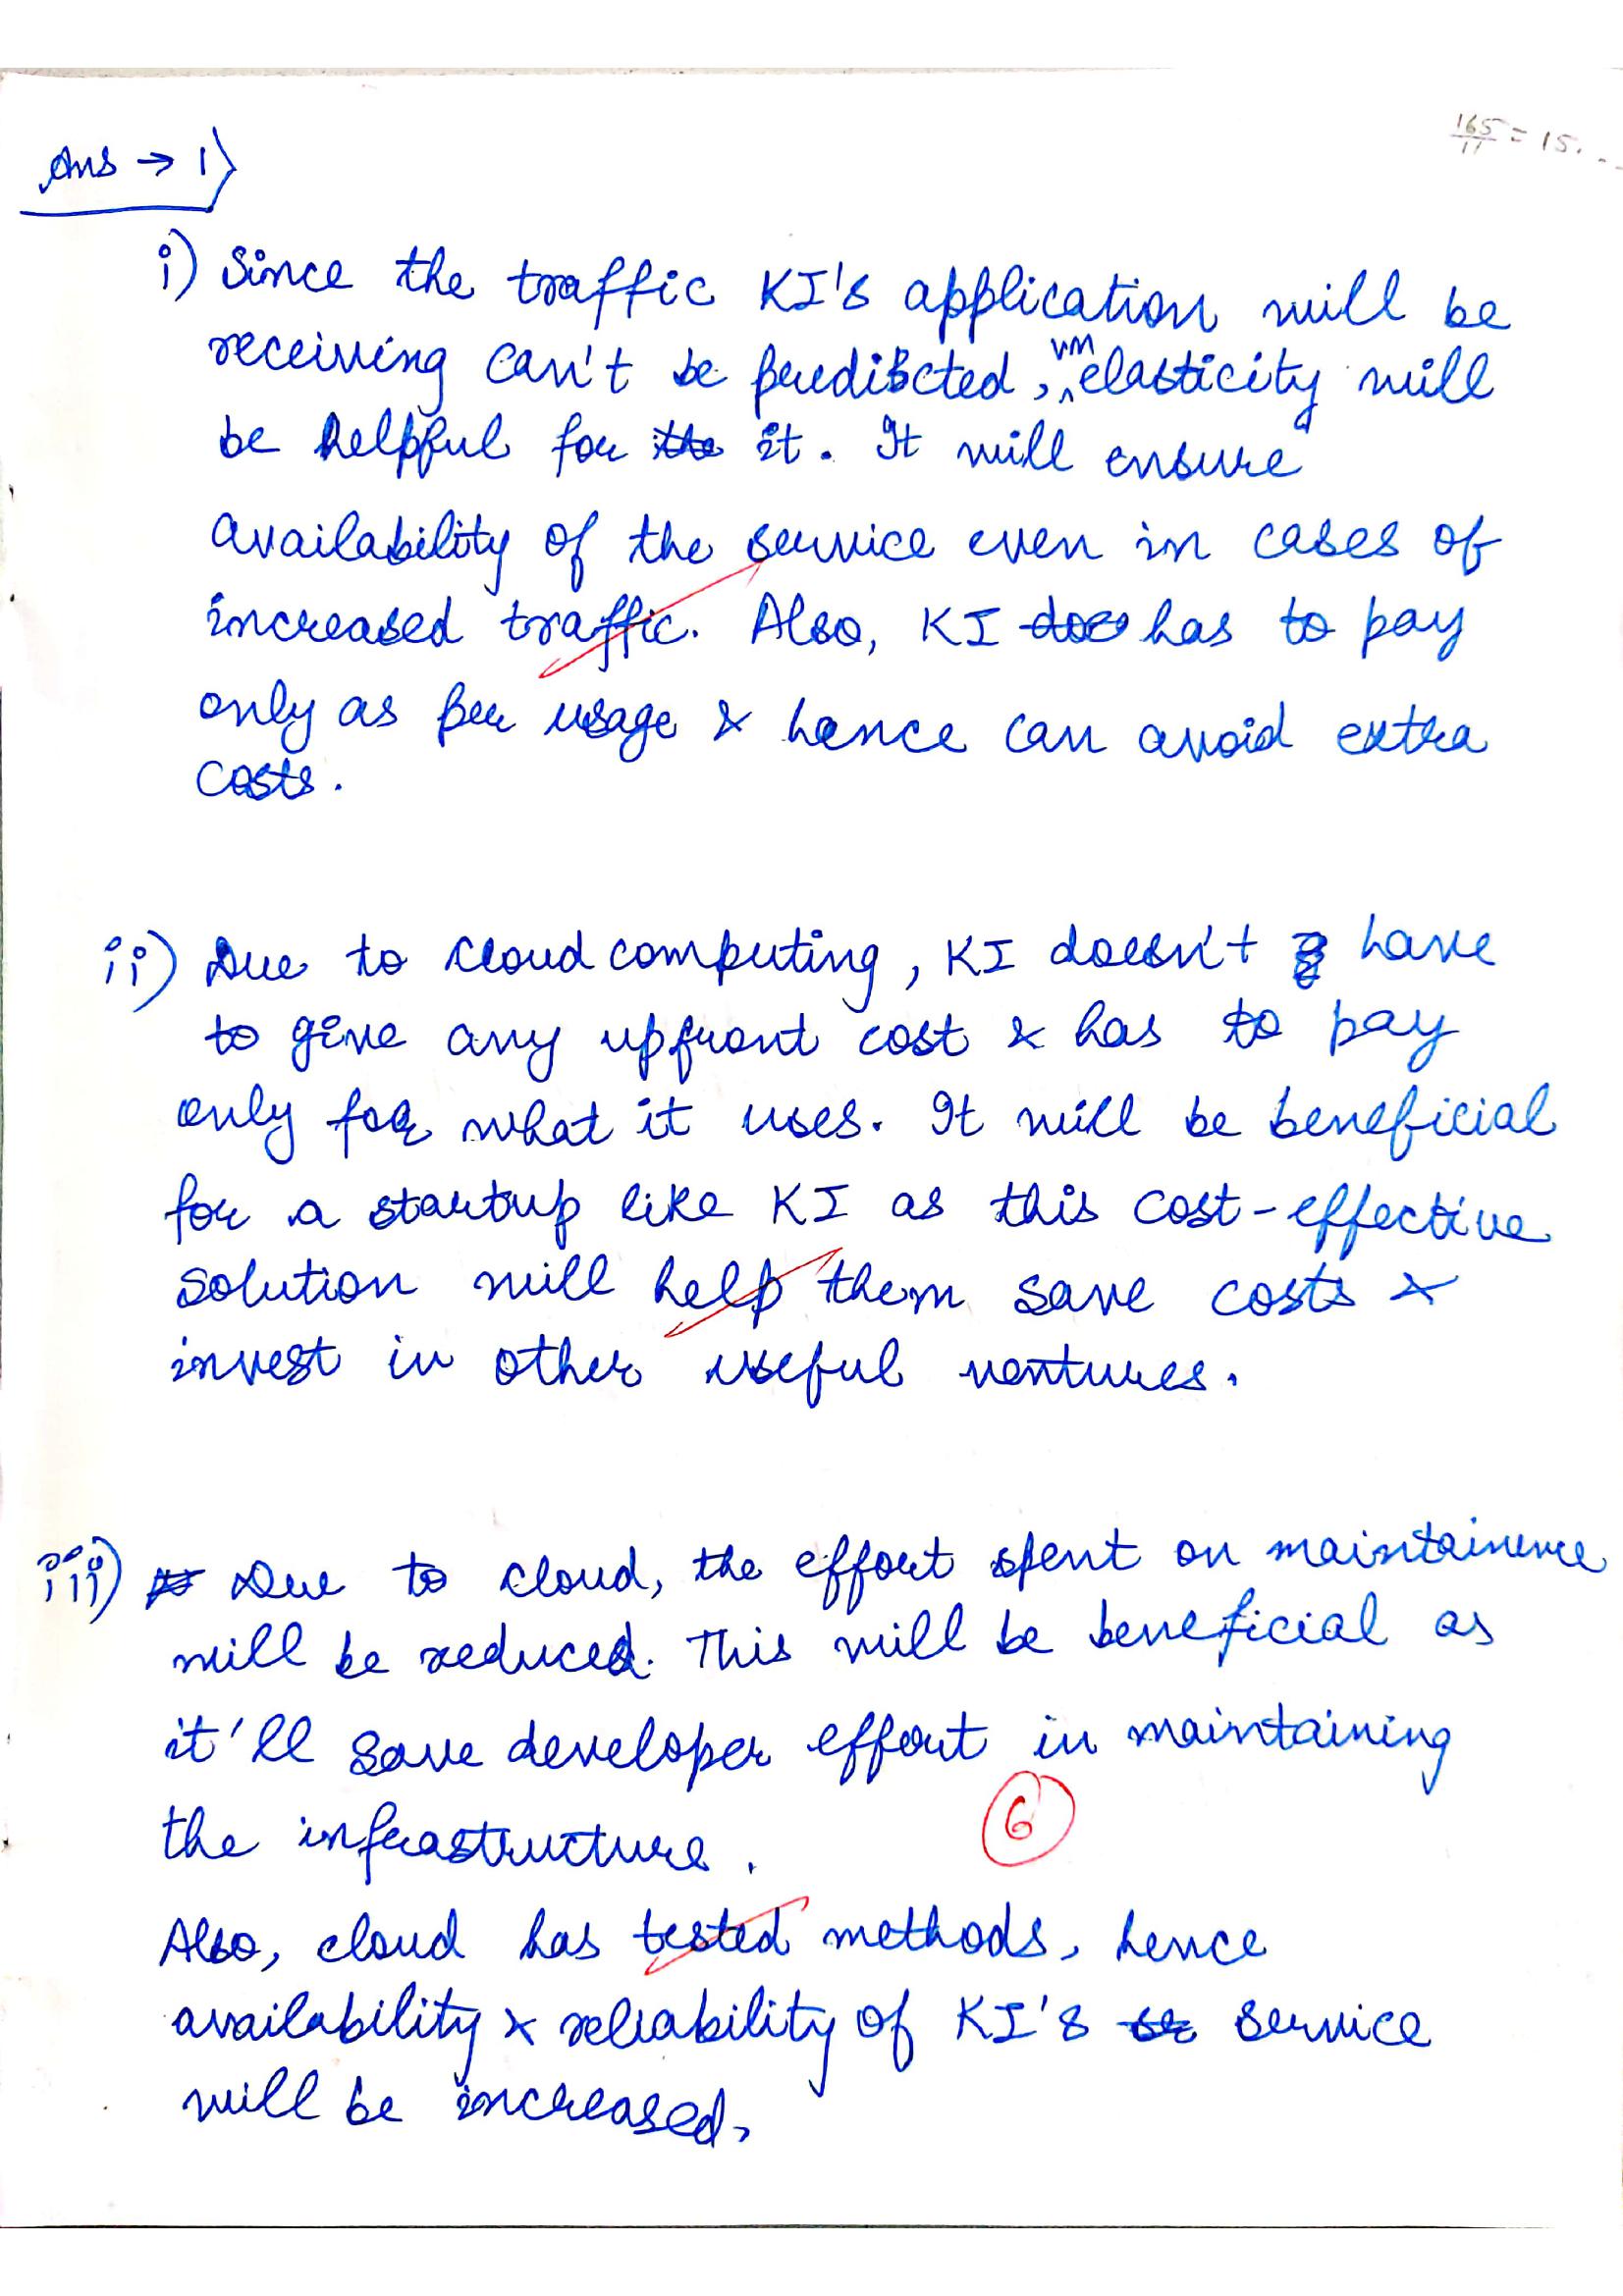 165/11 = 15.
Ans → 1)
i) Since the traffic KI's application will be
receiving can't be predicted, VM elasticity will
be helpful for it. It will ensure
availability of the service even in cases of
increased traffic. Also, KI has to pay
only as per usage & hence can avoid extra
costs.
ii) Due to cloud computing, KI doesn't have
to give any upfront cost & has to pay
only for what it uses. It will be beneficial
for a startup like KI as this cost-effective
solution will help them save costs &
invest in other useful ventures.
iii) Due to cloud, the effort spent on maintainence
will be reduced. This will be beneficial as
it'll save developer effort in maintaining
the infrastructure.
6
Also, cloud has tested methods, hence
availability & reliability of KI's service
will be increased.